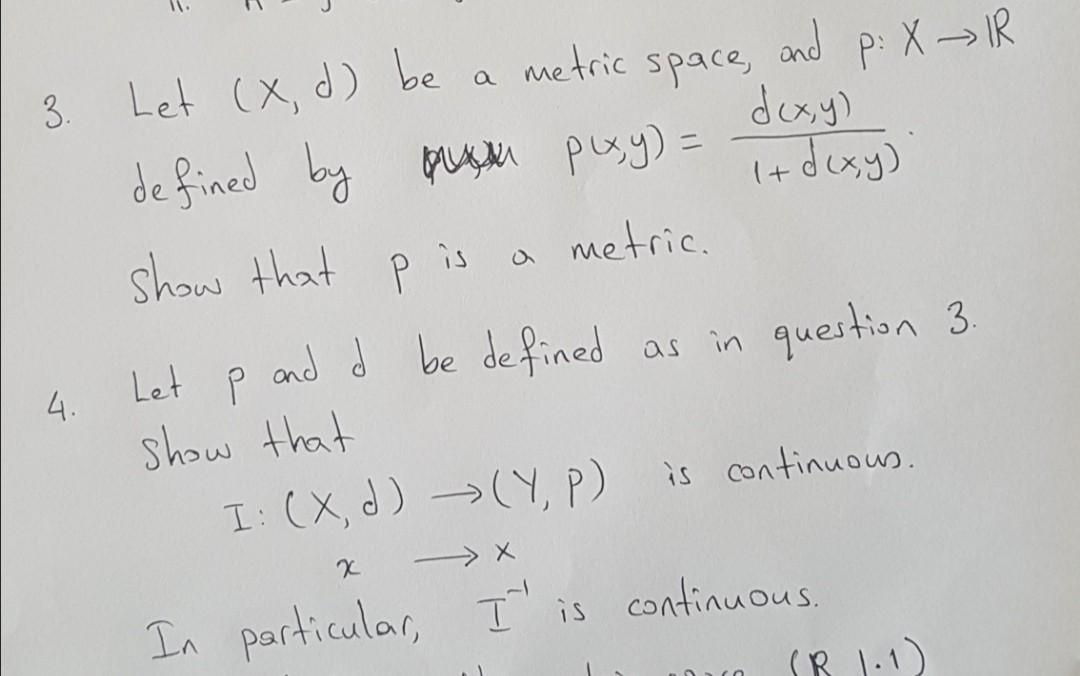 3. Let (X, d) be a metric space, and p: X → ℝ
defined by p(x,y) = d(x,y) / 1 + d(x,y) .
Show that p is a metric.
4. Let p and d be defined as in question 3.
Show that
I: (X, d) → (Y, p) is continuous.
x → x
In particular, I⁻¹ is continuous.
(R 1.1)